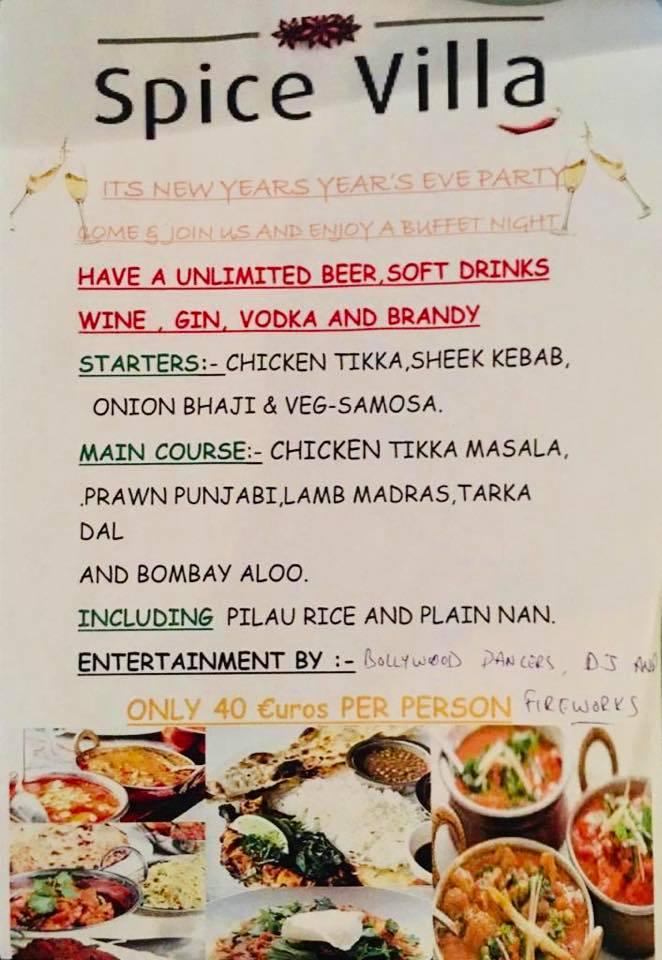 Spice Villa
ITS NEW YEARS YEAR'S EVE PARTY
COME & JOIN US AND ENJOY A BUFFET NIGHT
HAVE A UNLIMITED BEER,SOFT DRINKS
WINE , GIN, VODKA AND BRANDY
STARTERS:- CHICKEN TIKKA,SHEEK KEBAB,
ONION BHAJI & VEG-SAMOSA.
MAIN COURSE:- CHICKEN TIKKA MASALA,
.PRAWN PUNJABI,LAMB MADRAS,TARKA
DAL
AND BOMBAY ALOO.
INCLUDING PILAU RICE AND PLAIN NAN.
ENTERTAINMENT BY :- BOLLYWOOD DANCERS, DJ AND
ONLY 40 €uros PER PERSON FIREWORKS